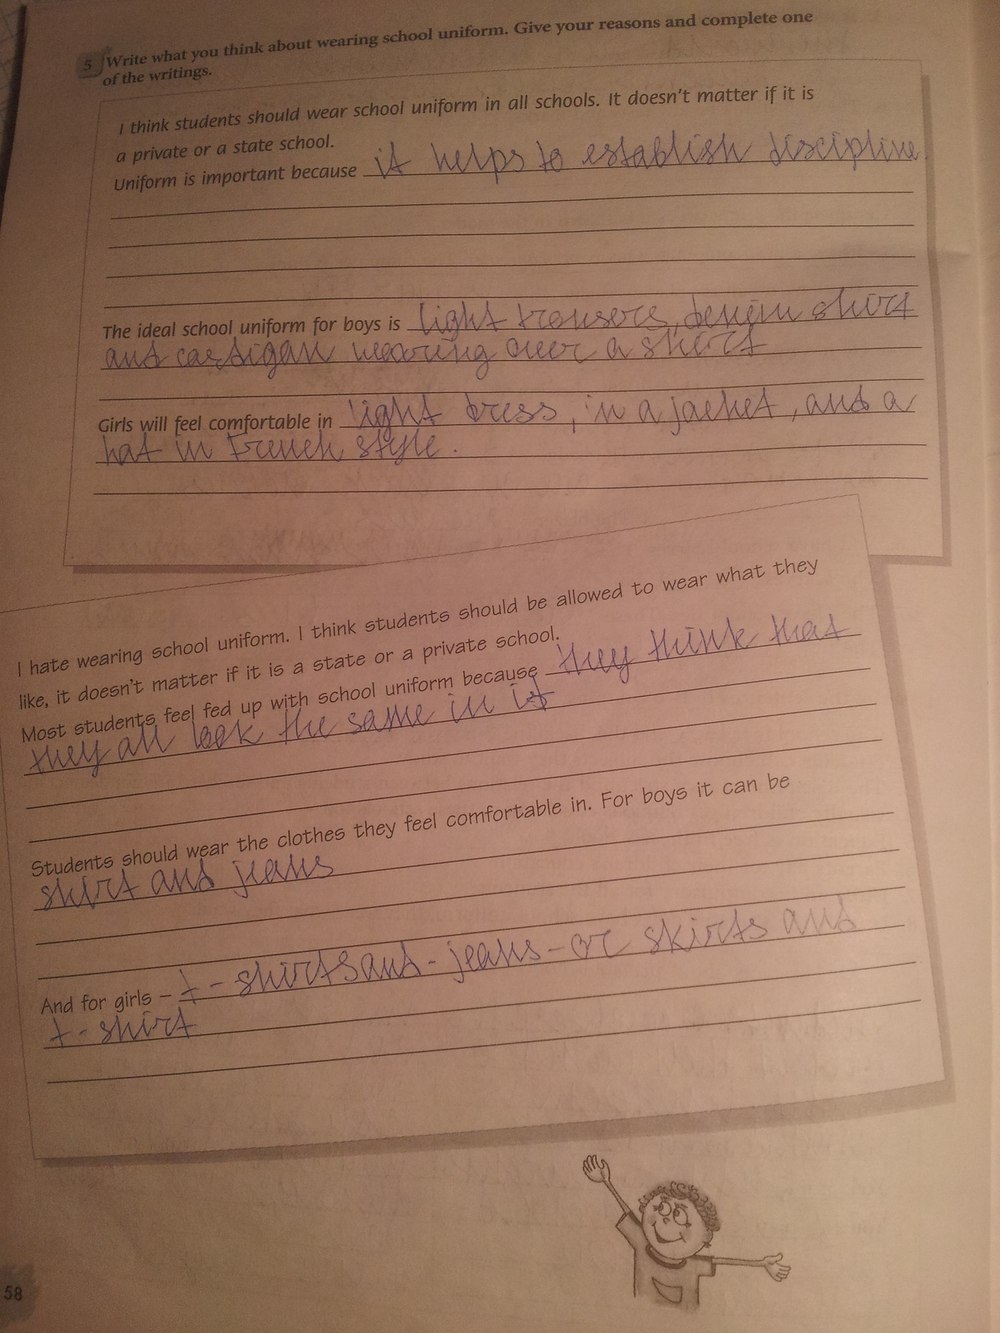 5 Write what you think about wearing school uniform. Give your reasons and complete one
of the writings.
I think students should wear school uniform in all schools. It doesn't matter if it is
a private or a state school.
Uniform is important because it helps to establish discipline.
The ideal school uniform for boys is light trousers, denim shirt
and cardigan wearing over a shirt
Girls will feel comfortable in light dress, in a jacket, and a
hat in French style.
I hate wearing school uniform. I think students should be allowed to wear what they
like, it doesn't matter if it is a state or a private school.
Most students feel fed up with school uniform because they think that
they all look the same in it
Students should wear the clothes they feel comfortable in. For boys it can be
shirt and jeans
And for girls – t-shirts and - jeans - or skirts and
t-shirt
58